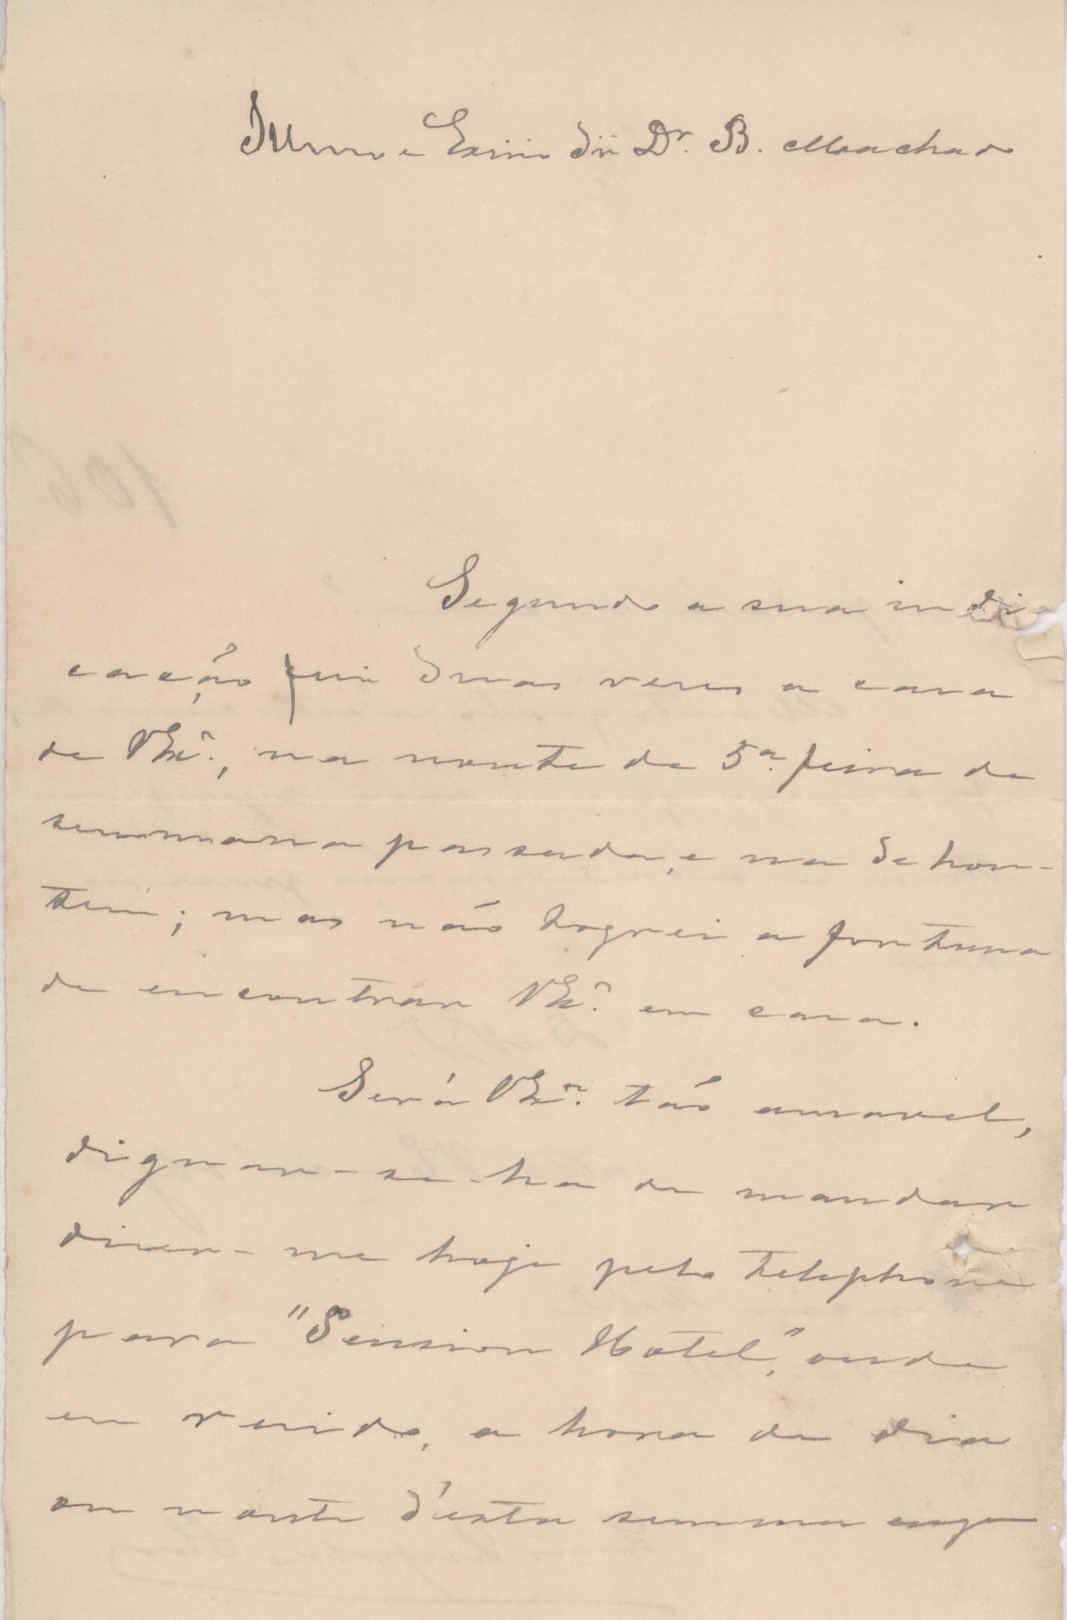 Illmo e Exmo Snr Dr. B. Machado
Segundo a sua indi
cação fui duas vezes a casa
de VExª., na noute de 5ª. feira da
semmana passada, e na de hon-
tem; mas não logrei a fortuna
de encontrar VExª. em casa.
Será VExª. tão amavel,
dignar-se-ha de mandar
dizer-me hoje pelo telephone
para "Pension Hotel", onde
eu resido, a hora do dia
ou noute d'esta semmana